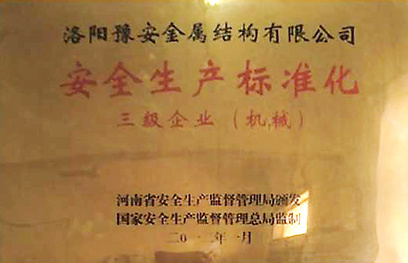 洛阳豫安金属结构有限公司
安全生产标准化
三级企业（机械）
河南省安全生产监督管理局颁发
国家安全生产监督管理总局监制
二〇一二年一月